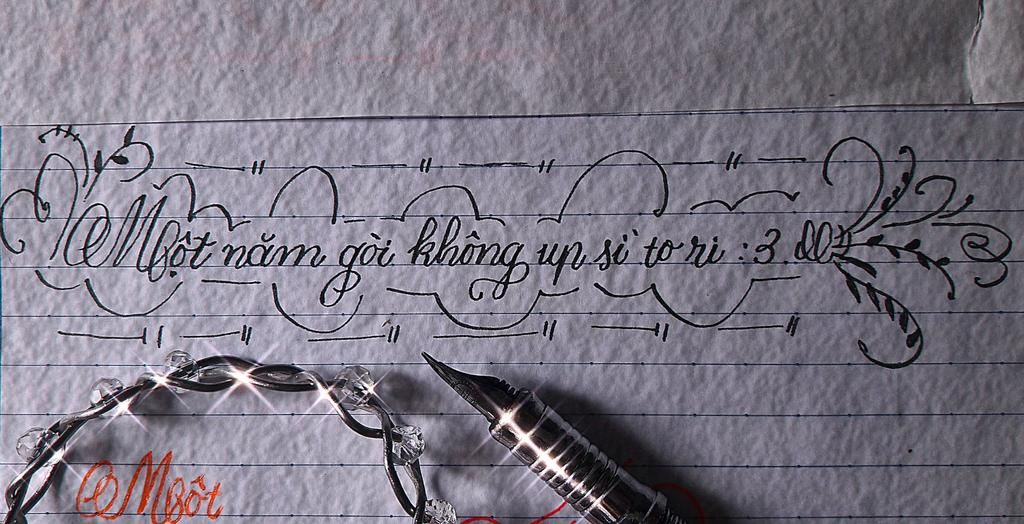 Một năm gòi không up sì to ri :3
Một